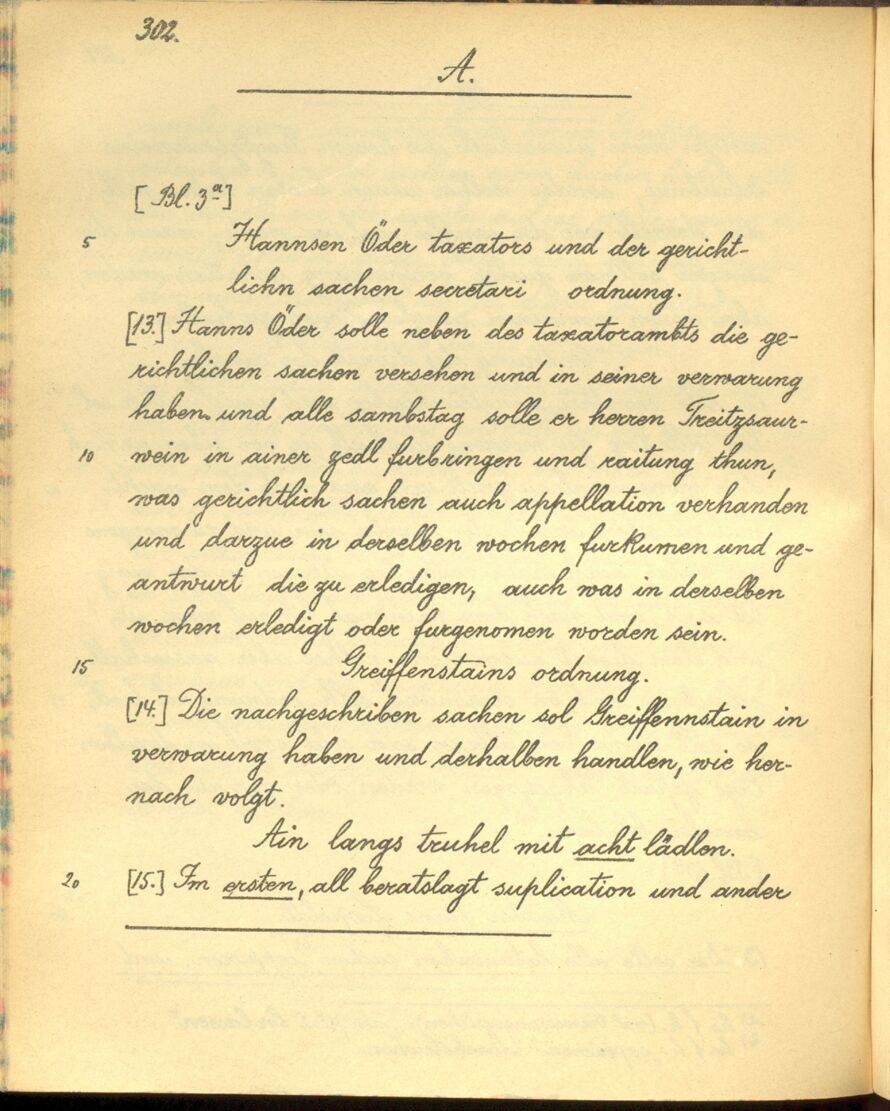 302.
A.
[Bl. 3ª]
5 Hannsen Öder taxators und der gericht-
lichn sachen secretari ordnung.
[13.] Hanns Öder solle neben des taxatorambts die ge-
richtlichen sachen versehen und in seiner verwarung
haben und alle sambstag solle er herren Treitzsaur-
10 wein in ainer zedl furbringen und raitung thun,
was gerichtlich sachen auch appellation verhanden
und darzue in derselben wochen furkumen und ge-
antwurt die zu erledigen, auch was in derselben
wochen erledigt oder furgenomen worden sein.
15 Greiffenstains ordnung.
[14.] Die nachgeschriben sachen sol Greiffennstain in
verwarung haben und derhalben handlen, wie her-
nach volgt.
Ain langs truhel mit acht lädlen.
20 [15.] Im ersten, all beratslagt suplication und ander